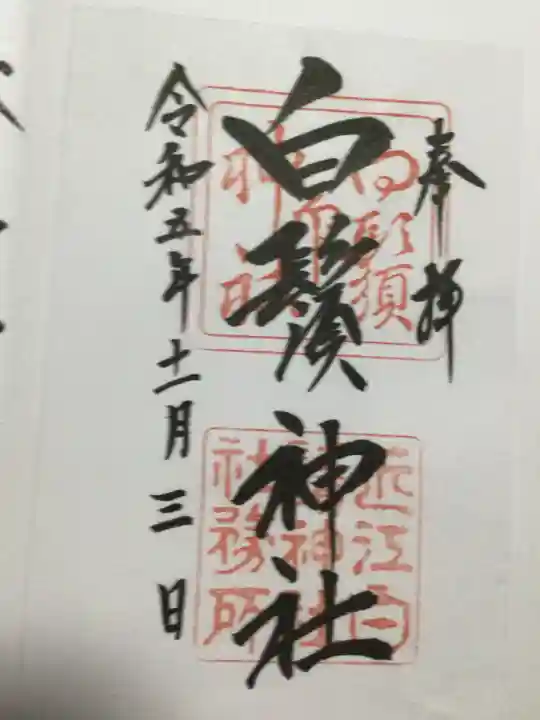 奉拝
白鬚神社
令和五年十一月三日
近江白
社務所